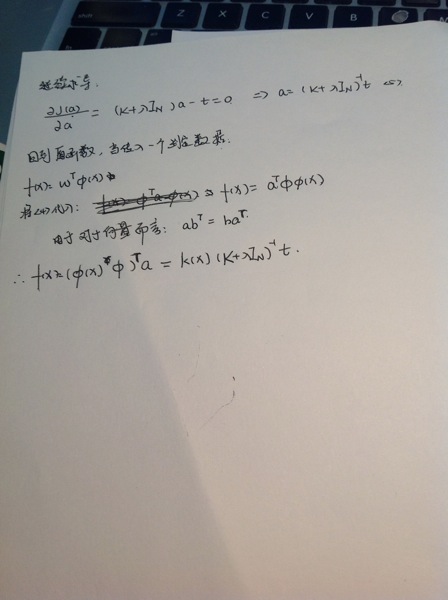 继续求导:
∂J(a)/∂a = (K+λI_N)a-t=0 ⇒ a=(K+λI_N)⁻¹t
回到原函数, 当传入一个测试数据
f(x)=wᵀφ(x)
代入: f(x)=aᵀΦφ(x)
由于对于向量而言: abᵀ=baᵀ
∴ f(x)=(φ(x)Φ)ᵀa=k(x)(K+λI_N)⁻¹t.